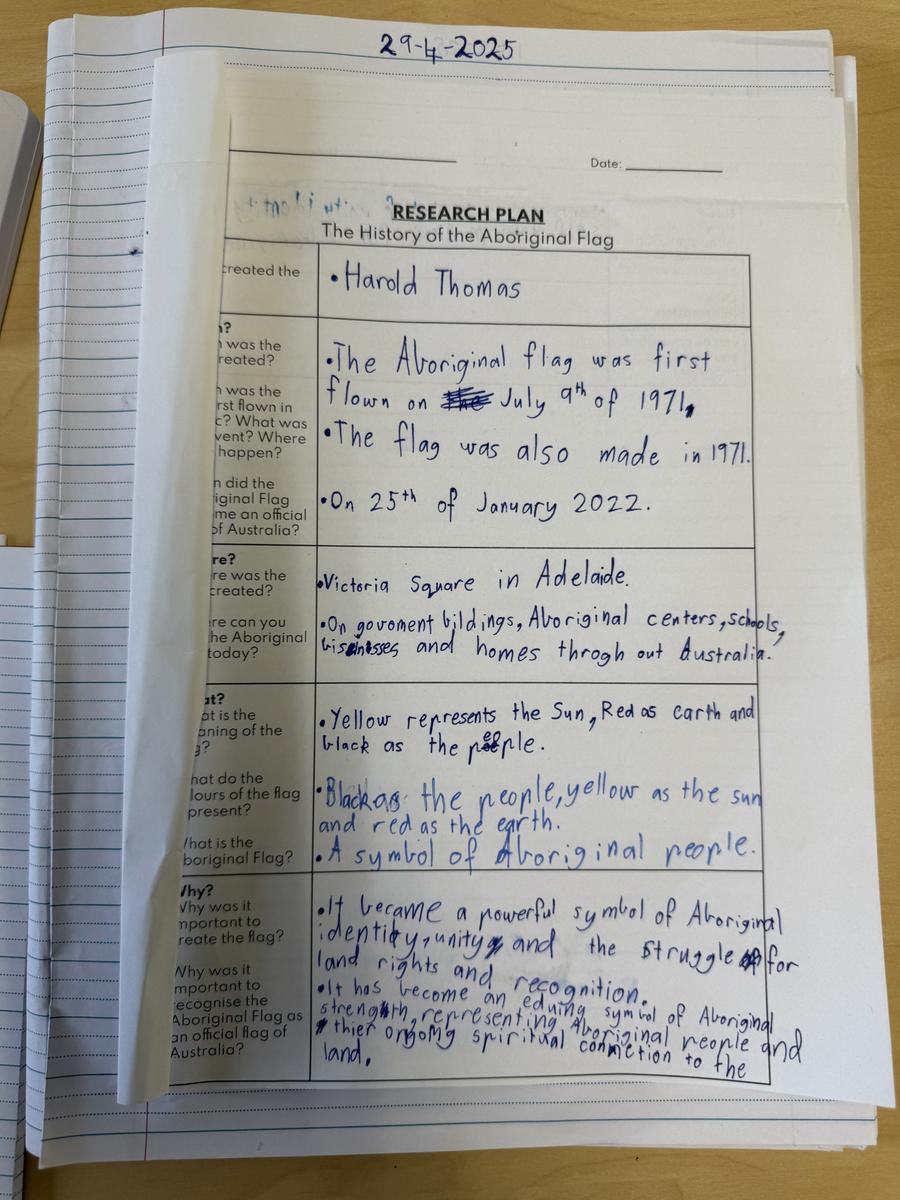 29-4-2025
Date:
RESEARCH PLAN
The History of the Aboriginal Flag
created the
• Harold Thomas
was the
reated?
was the
rst flown in
What was
vent? Where
happen?
did the
iginal Flag
me an official
of Australia?
•The Aboriginal flag was first
flown on July 9th of 1971.
•The flag was also made in 1971.
•On 25th of January 2022.
re?
re was the
created?
re can you
he Aboriginal
today?
•Victoria Square in Adelaide.
•On govoment bildings, Aboriginal centers, schools,
bisnisses and homes throgh out Australia.
at?
at is the
aning of the
g?
hat do the
lours of the flag
present?
What is the
boriginal Flag?
•Yellow represents the Sun, Red as earth and
black as the people.
•Black as the people, yellow as the sun
and red as the earth.
•A symbol of Aboriginal people.
Why?
Why was it
mportant to
reate the flag?
Why was it
mportant to
ecognise the
Aboriginal Flag as
an official flag of
Australia?
•It became a powerful symbol of Aboriginal
identity, unity and the struggle for
land rights and recognition.
•It has become an eduing symbol of Aboriginal
strength, representing Aboriginal people and
thier ongoing spiritual connetion to the
land.